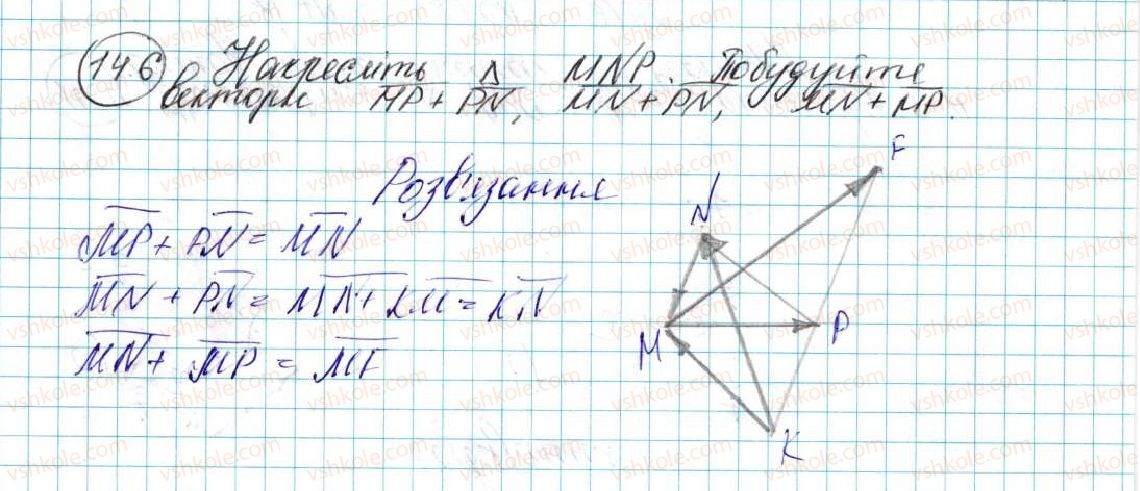 14.6 Накресліть Δ MNP. Побудуйте
вектори MP + PN, MN + PN, MN + MP.
Розв'язання
MP + PN = MN
MN + PN = MN + KM = KN
MN + MP = MF
F
N
M
P
K